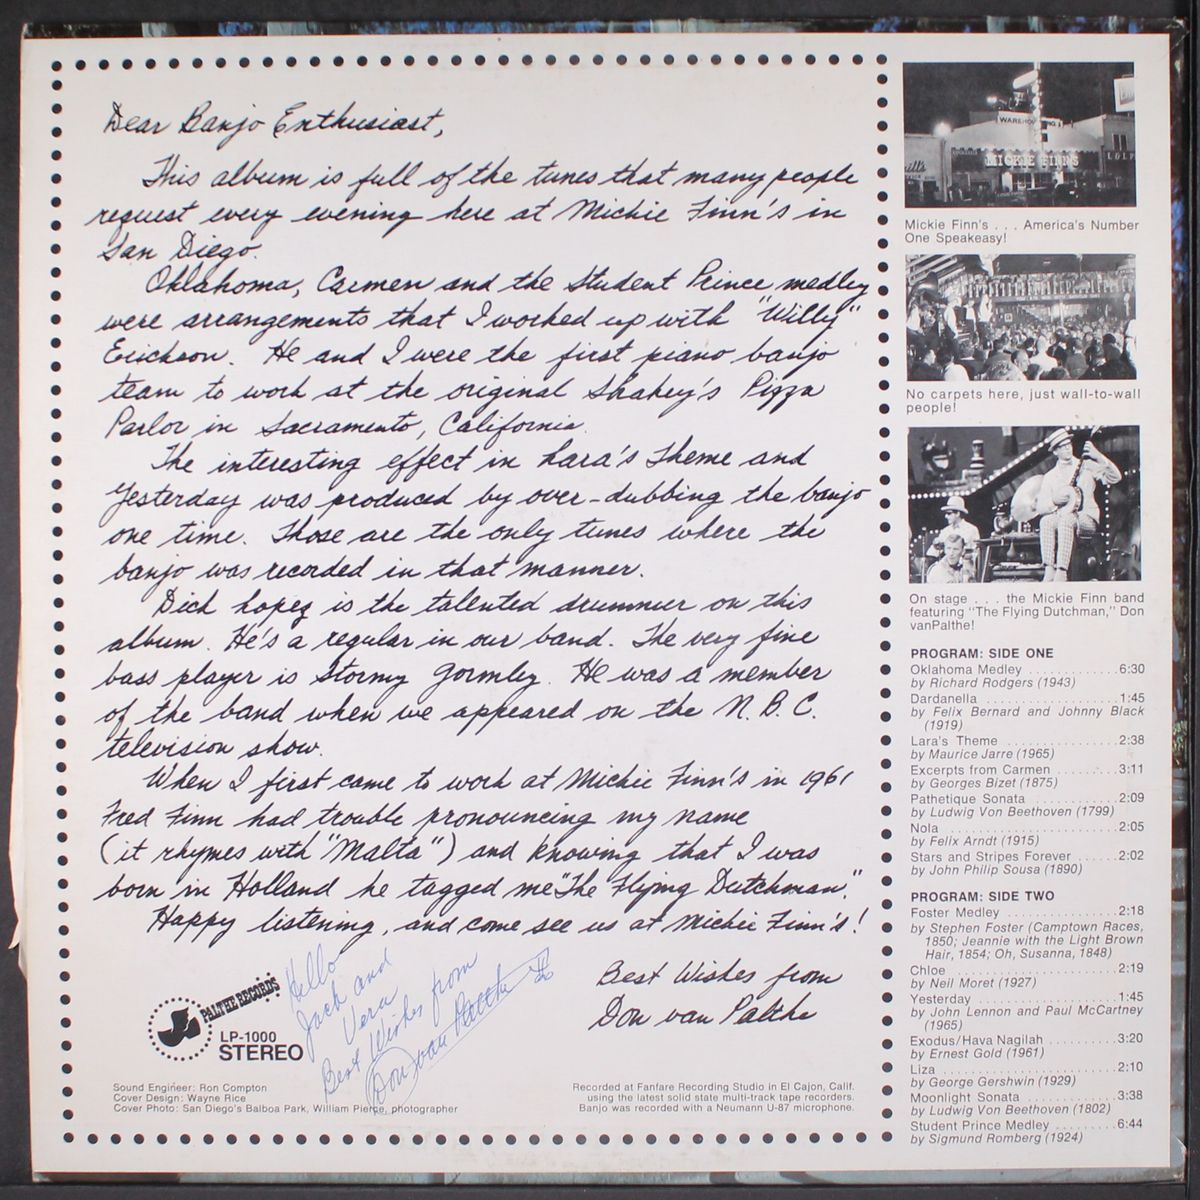 Dear Banjo Enthusiast,
This album is full of the tunes that many people
request every evening here at Mickie Finn's in
San Diego.
Oklahoma, Carmen and the Student Prince medley
were arrangements that I worked up with "Willy"
Erickson. He and I were the first piano banjo
team to work at the original Shakey's Pizza
Parlor in Sacramento, California.
The interesting effect in Lara's Theme and
Yesterday was produced by over-dubbing the banjo
one time. Those are the only tunes where the
banjo was recorded in that manner.
Dick Lopez is the talented drummer on this
album. He's a regular in our band. The very fine
bass player is Stormy Gormley. He was a member
of the band when we appeared on the N.B.C.
television show.
When I first came to work at Mickie Finn's in 1961
Fred Finn had trouble pronouncing my name
(it rhymes with "Malta") and knowing that I was
born in Holland he tagged me "The Flying Dutchman."
Happy listening, and come see us at Mickie Finn's!
Best Wishes from
Don van Palthe
Hello
Jack and
Vera
Best Wishes from
Don van Palthe
PALTHE RECORDS
LP-1000
STEREO
Sound Engineer: Ron Compton
Cover Design: Wayne Rice
Cover Photo: San Diego's Balboa Park, William Pierce, photographer
Recorded at Fanfare Recording Studio in El Cajon, Calif.
using the latest solid state multi-track tape recorders.
Banjo was recorded with a Neumann U-87 microphone.
MICKIE FINN'S
Mickie Finn's . . . America's Number
One Speakeasy!
No carpets here, just wall-to-wall
people!
On stage . . . the Mickie Finn band
featuring "The Flying Dutchman," Don
vanPalthe!
PROGRAM: SIDE ONE
Oklahoma Medley . . . . . . . . . . . . . 6:30
by Richard Rodgers (1943)
Dardanella . . . . . . . . . . . . . . . . . . 1:45
by Felix Bernard and Johnny Black
(1919)
Lara's Theme . . . . . . . . . . . . . . . . 2:38
by Maurice Jarre (1965)
Excerpts from Carmen . . . . . . . . . 3:11
by Georges Bizet (1875)
Pathetique Sonata . . . . . . . . . . . . 2:09
by Ludwig Von Beethoven (1799)
Nola . . . . . . . . . . . . . . . . . . . . . . . 2:05
by Felix Arndt (1915)
Stars and Stripes Forever . . . . . . 2:02
by John Philip Sousa (1890)
PROGRAM: SIDE TWO
Foster Medley . . . . . . . . . . . . . . . . 2:18
by Stephen Foster (Camptown Races,
1850; Jeannie with the Light Brown
Hair, 1854; Oh, Susanna, 1848)
Chloe . . . . . . . . . . . . . . . . . . . . . . 2:19
by Neil Moret (1927)
Yesterday . . . . . . . . . . . . . . . . . . . 1:45
by John Lennon and Paul McCartney
(1965)
Exodus/Hava Nagilah . . . . . . . . . . 3:20
by Ernest Gold (1961)
Liza . . . . . . . . . . . . . . . . . . . . . . . 2:10
by George Gershwin (1929)
Moonlight Sonata . . . . . . . . . . . . . 3:38
by Ludwig Von Beethoven (1802)
Student Prince Medley . . . . . . . . . 6:44
by Sigmund Romberg (1924)